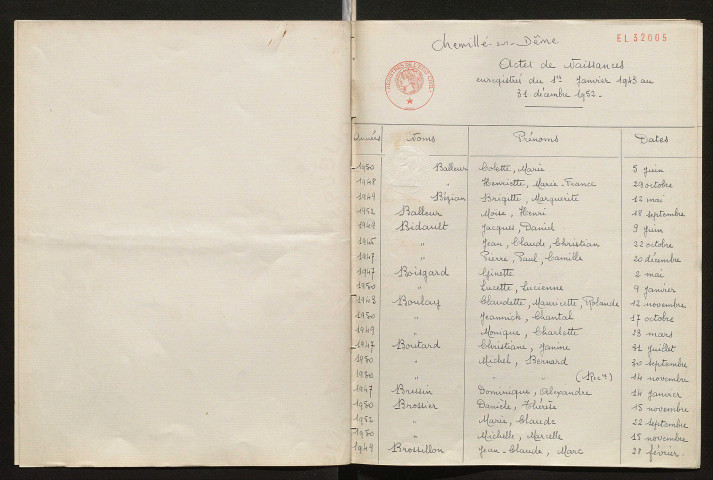 Chemillé-sur-Dême
EL32005
Actes de Naissances
enregistrés du 1er Janvier 1943 au
31 décembre 1952.
Années Noms Prénoms Dates
1950 Balleur Colette, Marie 5 juin
1948 " Henriette, Marie-France 29 octobre
1949 Bézian Brigitte, Marguerite 12 mai
1952 Balleur Moïse, Henri 18 septembre
1949 Bidault Jacques, Daniel 9 juin
1945 " Jean, Claude, Christian 22 octobre
1947 " Pierre, Paul, Camille 20 décembre
1947 Boisgard Ginette 2 mai
1950 " Lucette, Lucienne 9 janvier
1943 Boulay Claudette, Mauricette, Rolande 12 novembre
1950 " Jeannick, Chantal 17 octobre
1949 " Monique, Charlette 23 mars
1947 Boutard Christiane, Janine 31 juillet
1950 " Michel, Bernard 30 septembre
1950 " " " 14 novembre
1947 Brissin Dominique, Alexandre 14 janvier
1950 Brossier Danièle, Thérèse 15 novembre
1952 " Marie, Claude 22 septembre
1950 " Michelle, Marcelle 15 novembre
1949 Brossillon Jean-Claude, Marc 28 février